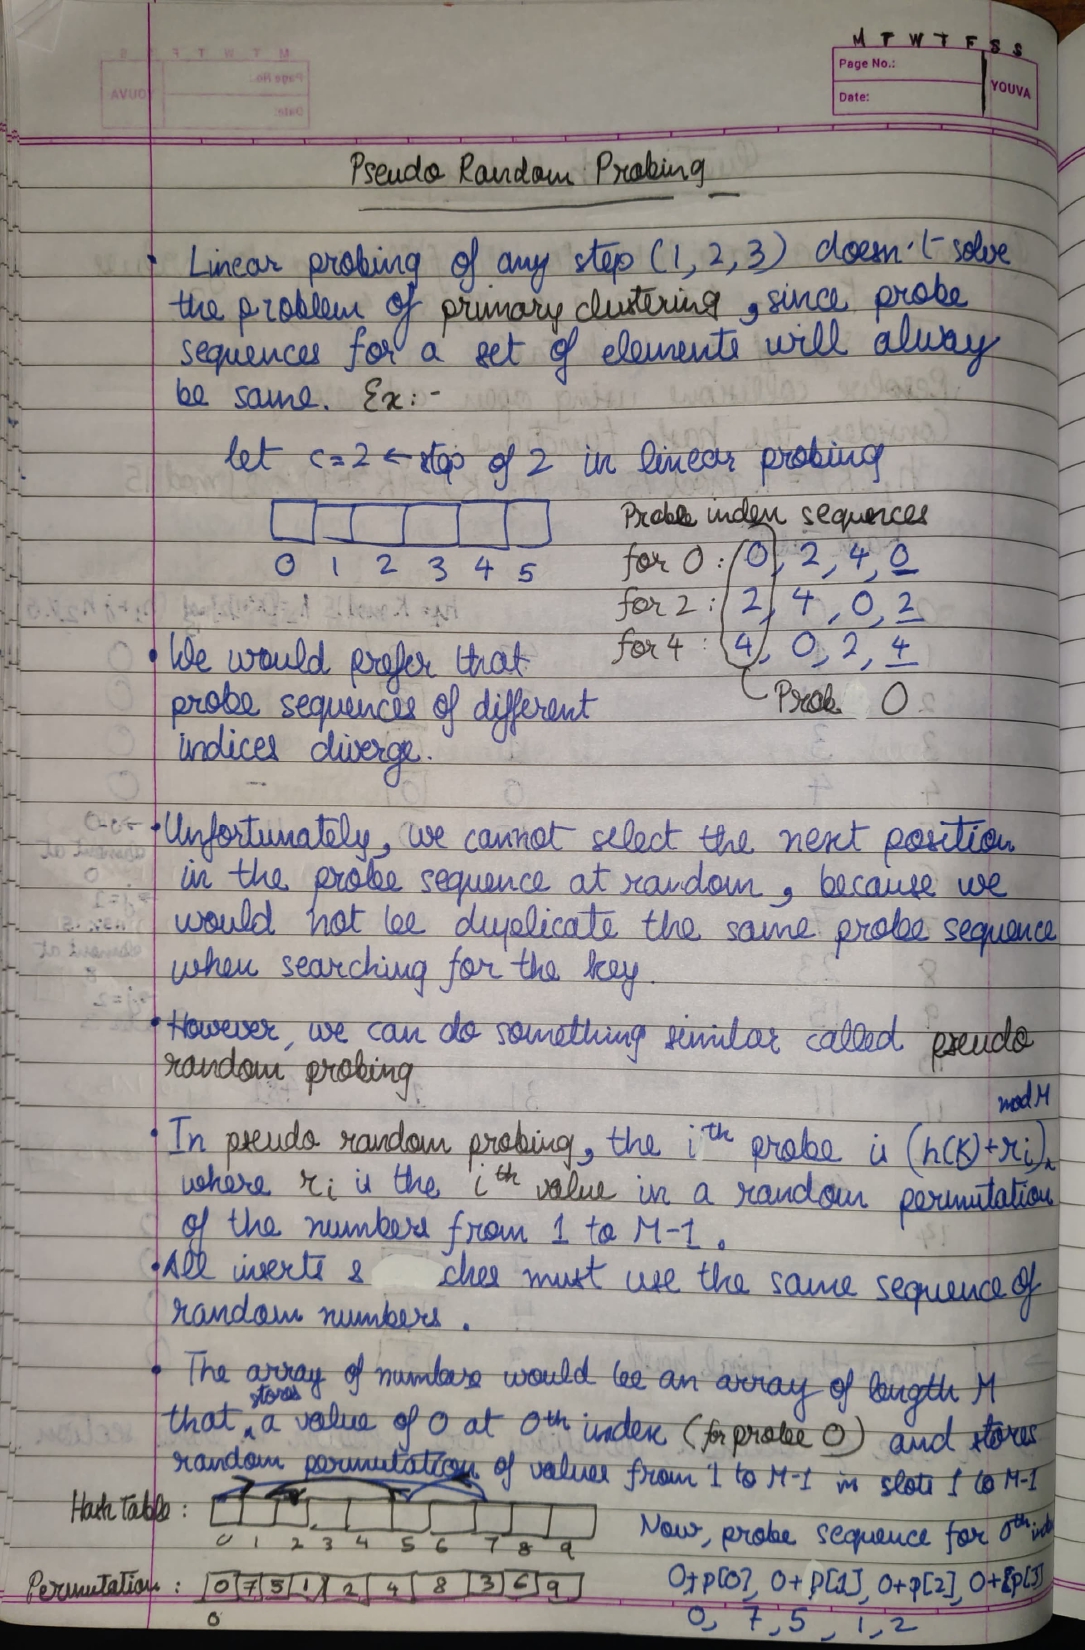 M T W T F S S
Page No.:
Date:
YOUVA
Pseudo Random Probing
• Linear probing of any step (1, 2, 3) doesn't solve
the problem of primary clustering, since probe
sequences for a set of elements will alway
be same. Ex:-
let c=2 ← step of 2 in linear probing
0 1 2 3 4 5
Probe index sequences
for 0 : 0, 2, 4, 0
for 2 : 2, 4, 0, 2
for 4 : 4, 0, 2, 4
Prob 0
• We would prefer that
probe sequences of different
indices diverge.
• Unfortunately, we cannot select the next position
in the probe sequence at random, because we
would not be duplicate the same probe sequence
when searching for the key.
• However, we can do something similar called pseudo
random probing
• In pseudo random probing, the ith probe is (h(K)+ri) mod M
where ri is the ith value in a random permutation
of the numbers from 1 to M-1.
• All inserts & ches must use the same sequence of
random numbers.
• The array of numbers would be an array of length M
that stores a value of 0 at 0th index (for probe 0) and stores
random permutation of values from 1 to M-1 in slots 1 to M-1
Hash table :
0 1 2 3 4 5 6 7 8 9
Now, probe sequence for 0th
Permutation : 0 7 5 1 2 4 8 3 6 9
0
0+p[0], 0+p[1], 0+p[2], 0+p[3]
0, 7, 5, 1, 2